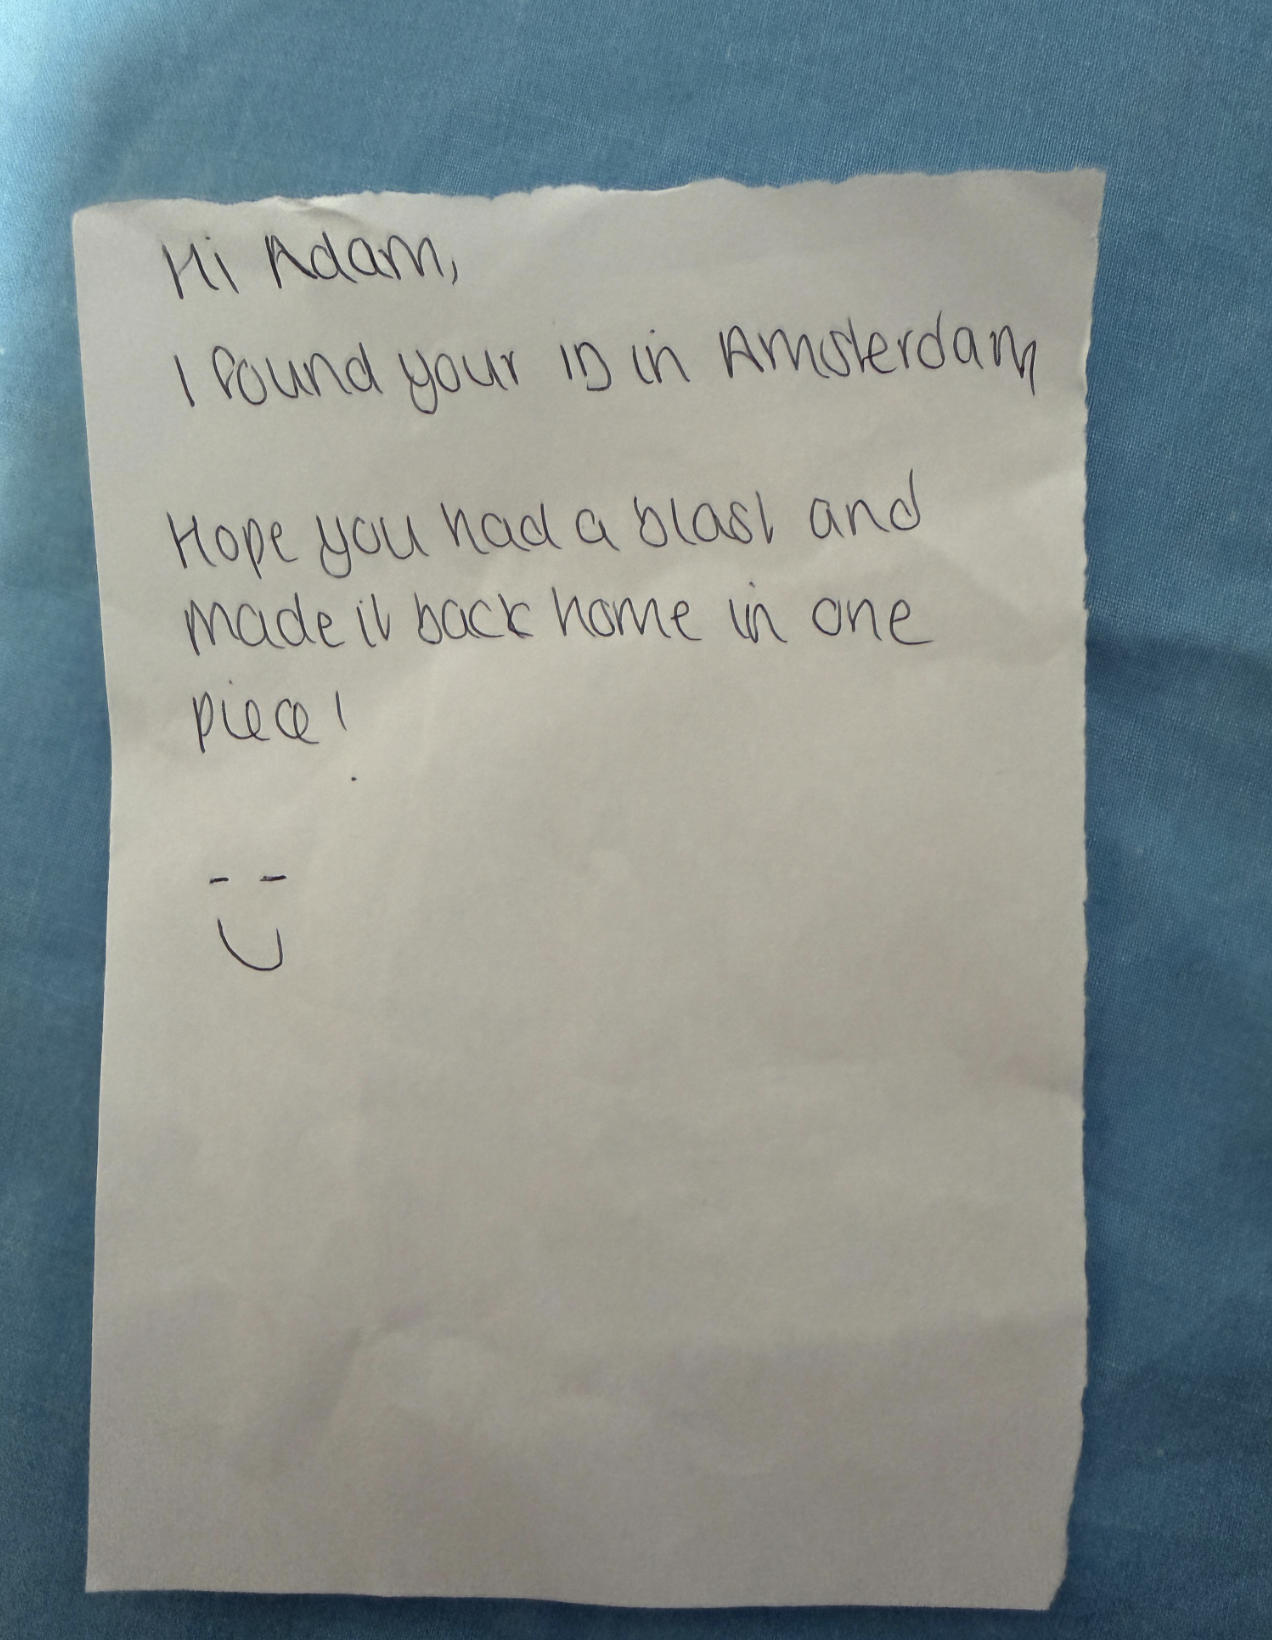 Hi Adam,
I found your ID in Amsterdam
Hope you had a blast and
made it back home in one
piece!